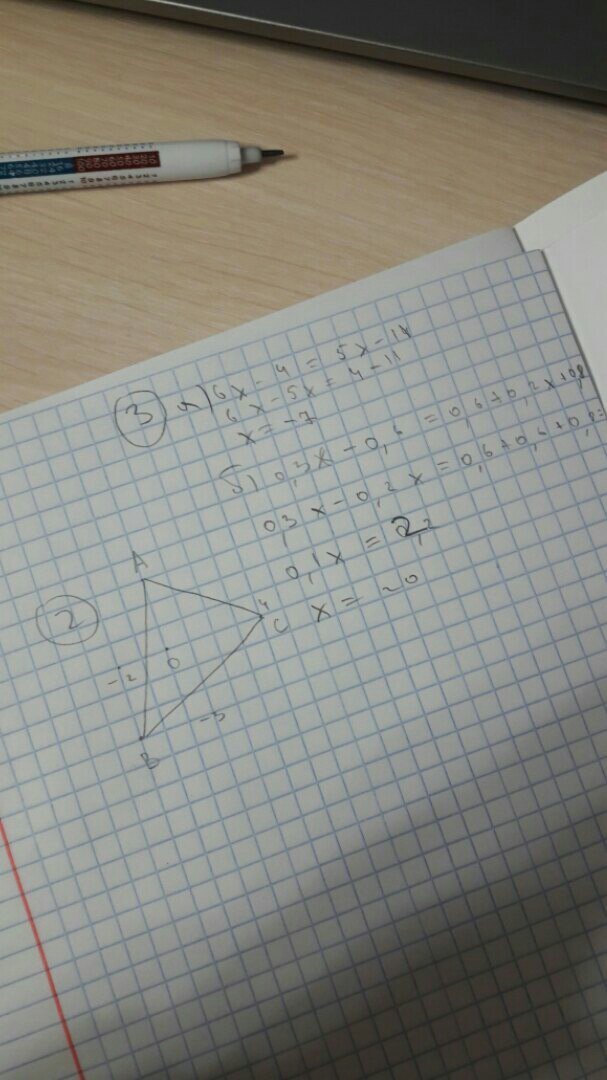 ③ а) 6x - 4 = 5x - 11
6x - 5x = 4 - 11
x = -7
б) 0,3x - 0,6 = 0,6 + 0,2x + 0,8
0,3x - 0,2x = 0,6 + 0,6 + 0,8
0,1x = 2,2
x = 20
②
A
C
0
-2
-3
B